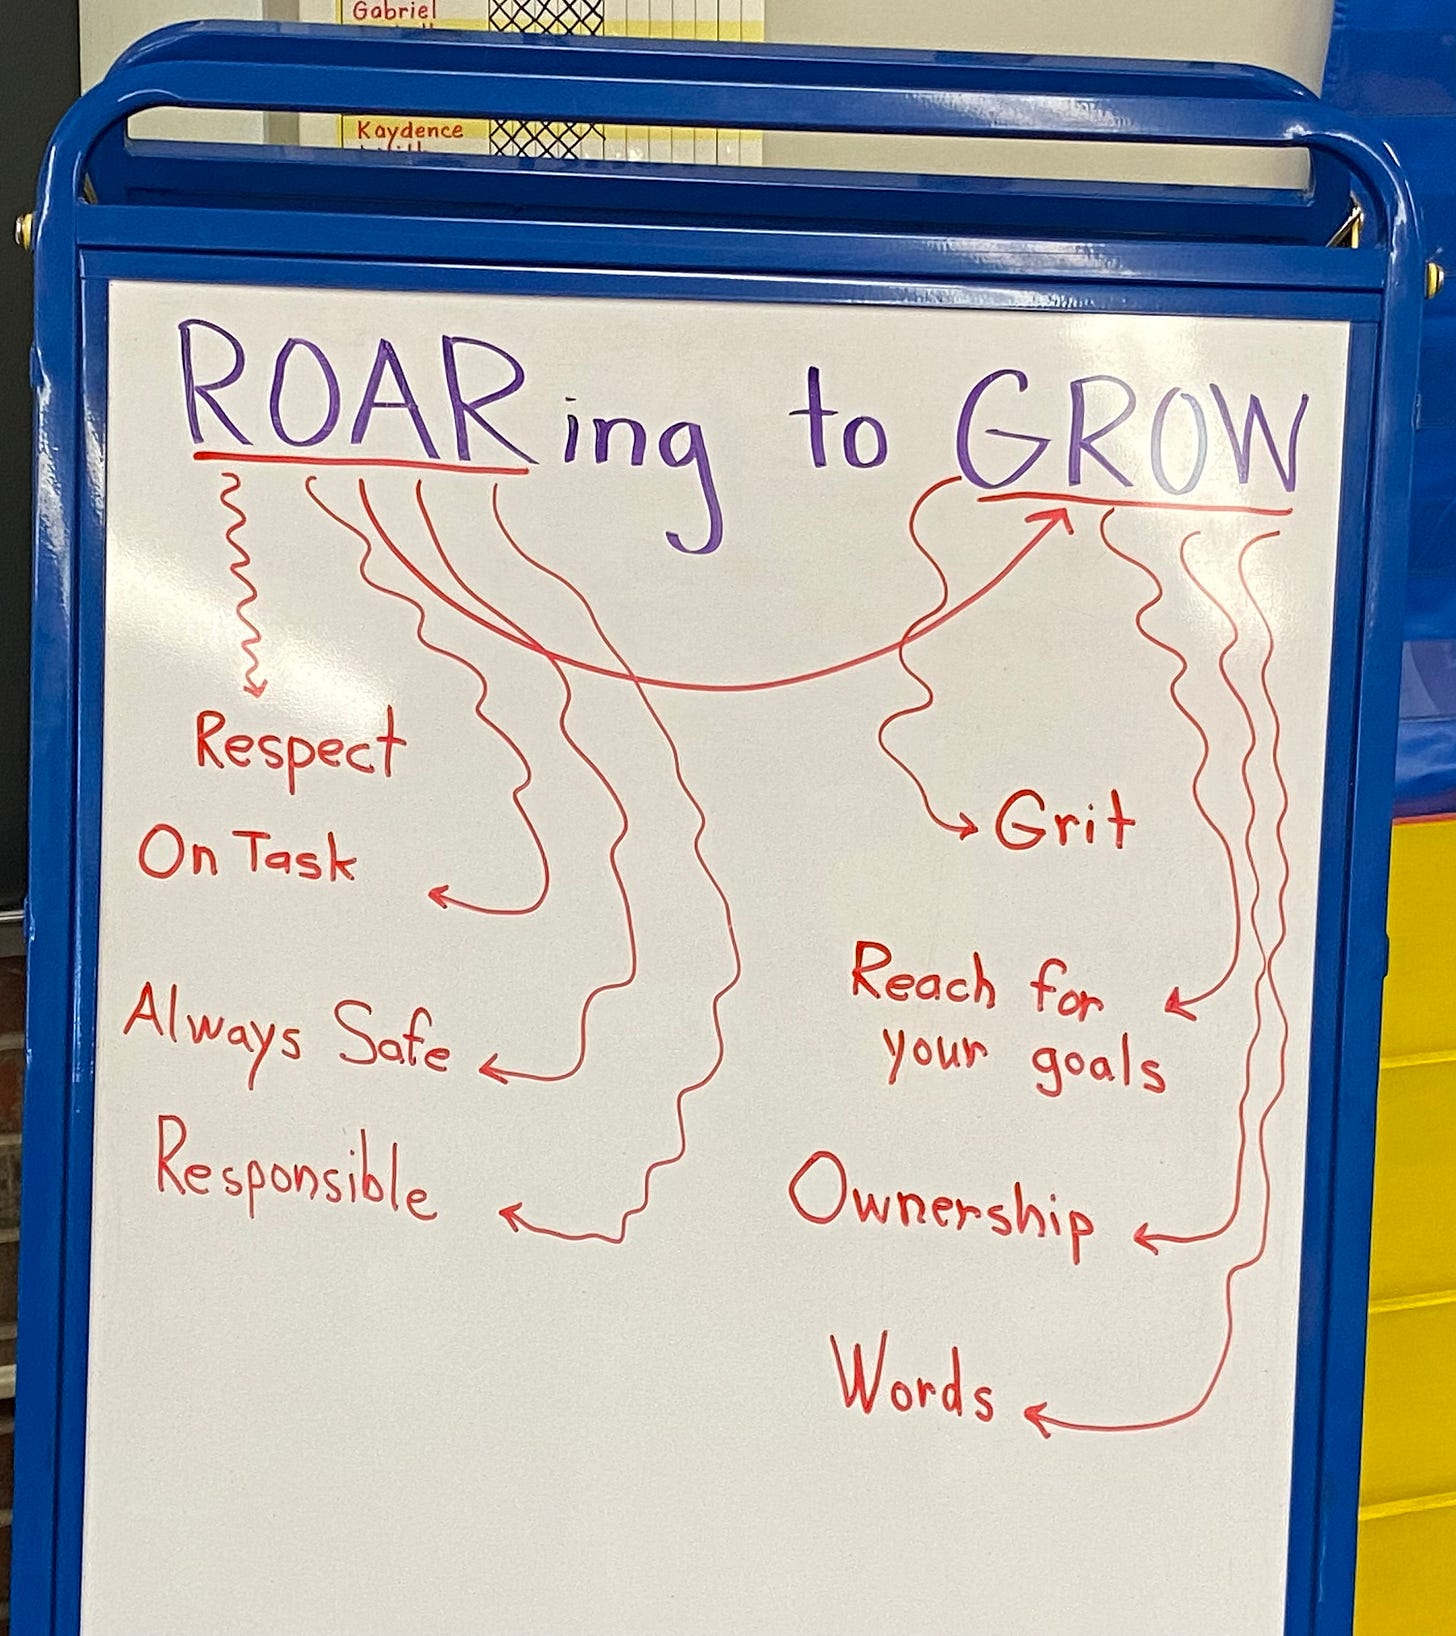 Gabriel
Kaydence
ROARing to GROW
Respect
On Task
Always Safe
Responsible
Grit
Reach for
your goals
Ownership
Words